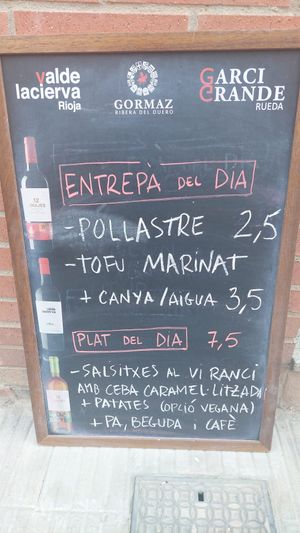 valde
lacierva
Rioja
GORMAZ
RIBERA DEL DUERO
GARCI
GRANDE
RUEDA
ENTREPÀ DEL DIA
-POLLASTRE 2,5
-TOFU MARINAT
+ CANYA/AIGUA 3,5
PLAT DEL DIA 7,5
-SALSITXES AL VI RANCI
AMB CEBA CARAMEL·LITZADA
+ PATATES (OPCIÓ VEGANA)
+ PA, BEGUDA I CAFÈ